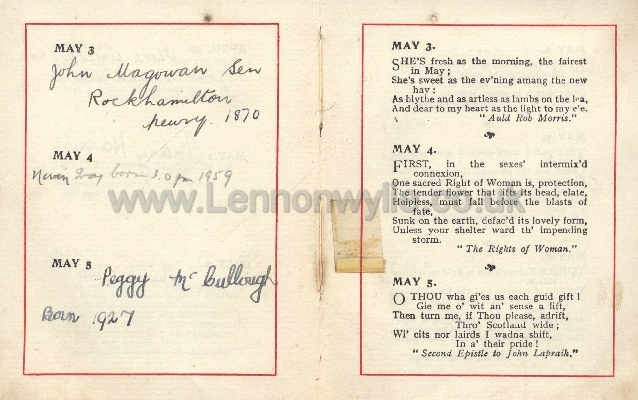 MAY 3
John Magowan Sen
Rockhamilton
newry. 1870
MAY 4
born 3.0 pm 1959
MAY 5
Peggy McCullough
Born 1927
MAY 3.
SHE'S fresh as the morning, the fairest
in May;
She's sweet as the ev'ning amang the new
hay;
As blythe and as artless as lambs on the lea,
And dear to my heart as the light to my e'e.
"Auld Rob Morris."
MAY 4.
FIRST, in the sexes' intermix'd
connexion,
One sacred Right of Woman is, protection,
The tender flower that lifts its head, elate,
Helpless, must fall before the blasts of
fate,
Sunk on the earth, defac'd its lovely form,
Unless your shelter ward th' impending
storm.
"The Rights of Woman."
MAY 5.
O THOU wha gi'es us each guid gift!
Gie me o' wit an' sense a lift,
Then turn me, if Thou please, adrift,
Thro' Scotland wide;
Wi' cits nor lairds I wadna shift,
In a' their pride!
"Second Epistle to John Lapraik."
www.Lennonwylie.co.uk